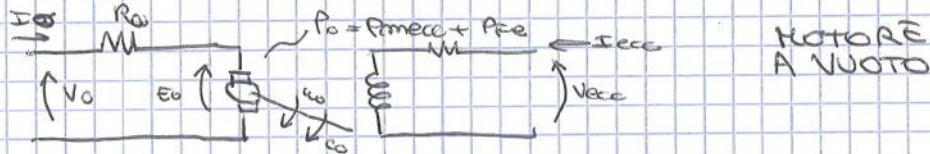 Ra
P0 = Pmecc + PFe
Iecc
MOTORE
A VUOTO
V0
E0
ω0
C0
Vecc